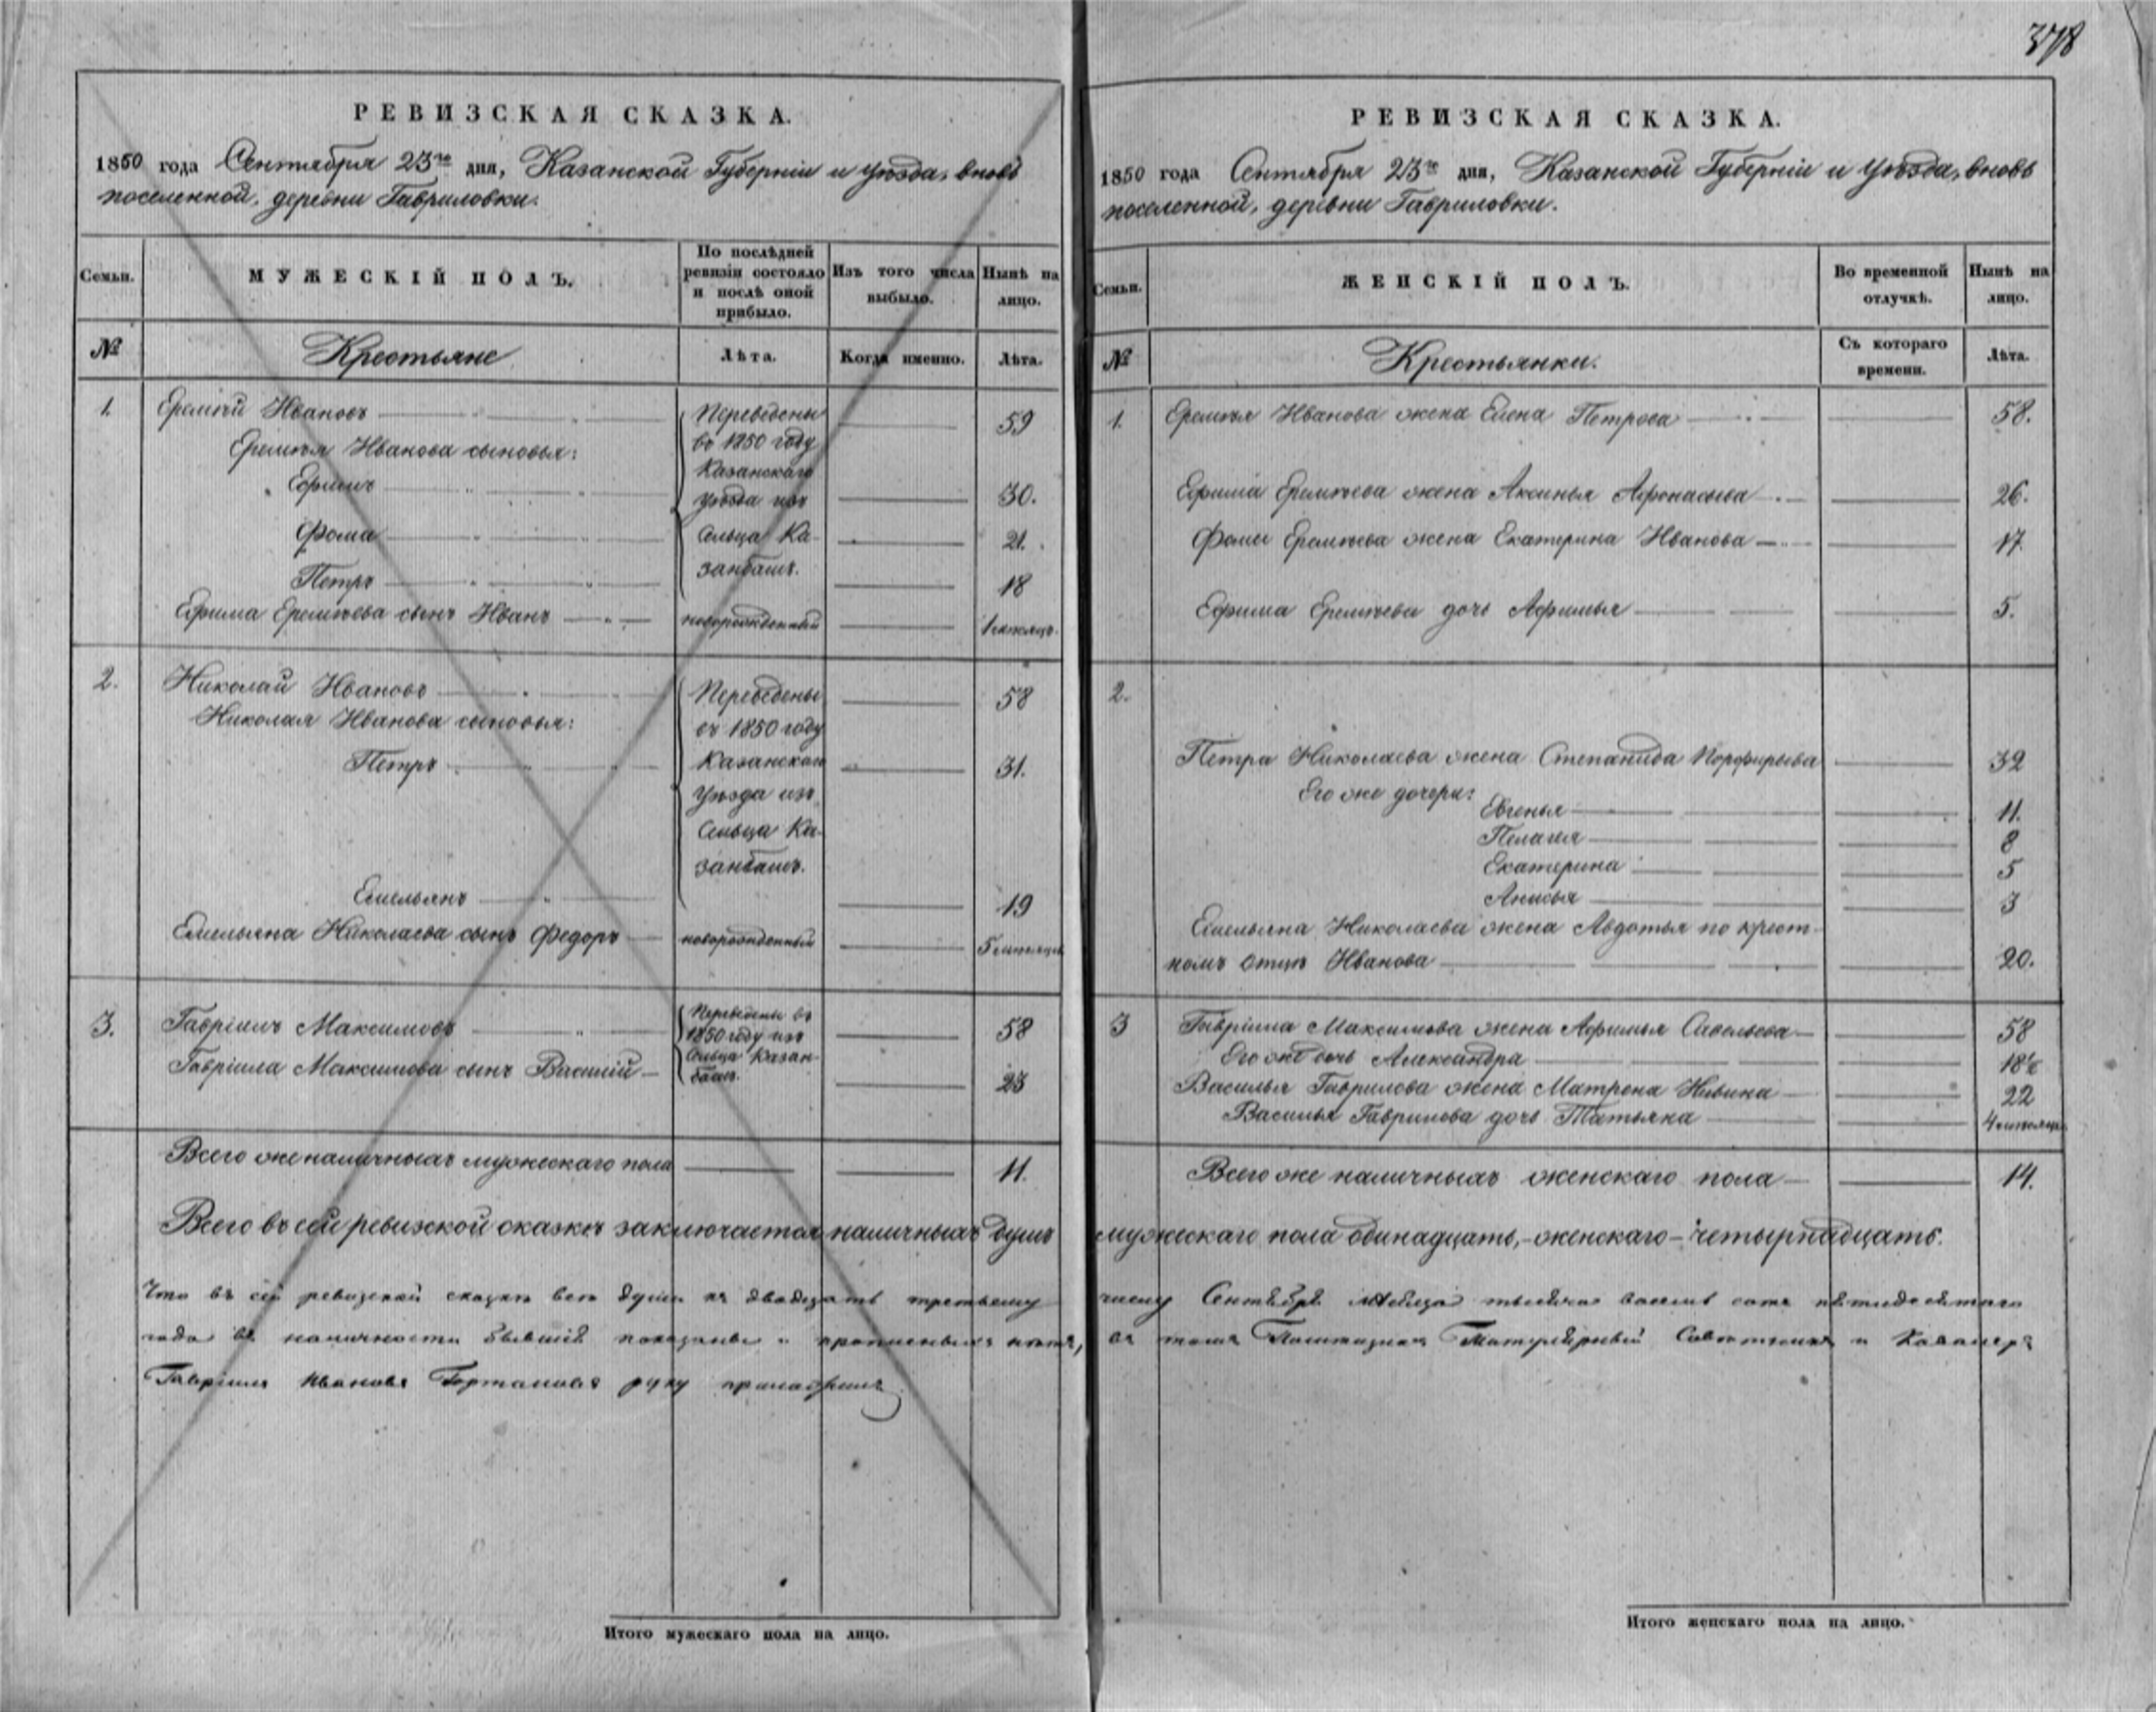 378
РЕВИЗСКАЯ СКАЗКА.
1850 года Сентября 23го дня, Казанской Губерніи и Уѣзда, вновь
поселенной, деревни Гавриловки.
Семьи.
МУЖЕСКІЙ ПОЛЪ.
По послѣдней
ревизіи состояло
и послѣ оной
прибыло.
Изъ того числа
выбыло.
Нынѣ на
лицо.
№
Крестьяне
Лѣта.
Когда именно.
Лѣта.
1. Еремѣй Ивановъ 59
Еремѣя Иванова сыновья:
Ефимъ 30.
Фома 21.
Петръ 18
Переведены
въ 1850 году
Казанскаго
уѣзда изъ
Сельца Ка-
занбашъ.
Ефима Еремѣева сынъ Иванъ новорожденный 1 мѣсяцъ.
2. Николай Ивановъ 58
Николая Иванова сыновья:
Петръ 31.
Емельянъ 19
Переведены
въ 1850 году
Казанскаго
Уѣзда изъ
Сельца Ка-
занбашъ.
Емельяна Николаева сынъ Федоръ новорожденный 5 мѣсяцевъ
3. Гавріилъ Максимовъ 58
Гавріила Максимова сынъ Василій 23
Переведены въ
1850 году изъ
Сельца Казан-
башъ.
Всего же наличныхъ мужескаго пола 11.
Всего въ сей ревизской сказкѣ заключается наличныхъ душъ
Что въ сей ревизской сказкѣ всѣ души къ двадцать третьему
года въ наличности бывшія показаны и прописныхъ нѣтъ,
Гавріилъ Ивановъ руку приложилъ
Итого мужескаго пола на лицо.
РЕВИЗСКАЯ СКАЗКА.
1850 года Сентября 23го дня, Казанской Губерніи и Уѣзда, вновь
поселенной, деревни Гавриловки.
Семьи.
ЖЕНСКІЙ ПОЛЪ.
Во временной
отлучкѣ.
Нынѣ на
лицо.
№
Крестьянки.
Съ котораго
времени.
Лѣта.
1. Еремѣя Иванова жена Елена Петрова 58.
Ефима Еремѣева жена Аксинья Афонасьева 26.
Фомы Еремѣева жена Екатерина Иванова 17.
Ефима Еремѣева дочь Афимья 5.
2.
Петра Николаева жена Степанида Порфирьева 32
Его же дочери:
Евгенья 11.
Пелагея 8
Екатерина 5
Анисья 3
Емельяна Николаева жена Авдотья по крест-
номъ отцѣ Иванова 20.
3 Гавріила Максимова жена Афимья Савельева 58
Его же дочь Александра 18½
Василья Гаврилова жена Матрена 22
Василья Гаврилова дочь Татьяна 4 мѣсяца
Всего же наличныхъ женскаго пола 14.
мужескаго пола одинадцать, - женскаго - четырнадцать.
числу Сентября мѣсяца тысяча восемь сотъ пятидесятаго
въ томъ Титулярный Совѣтникъ и Кавалеръ
Итого женскаго пола на лицо.